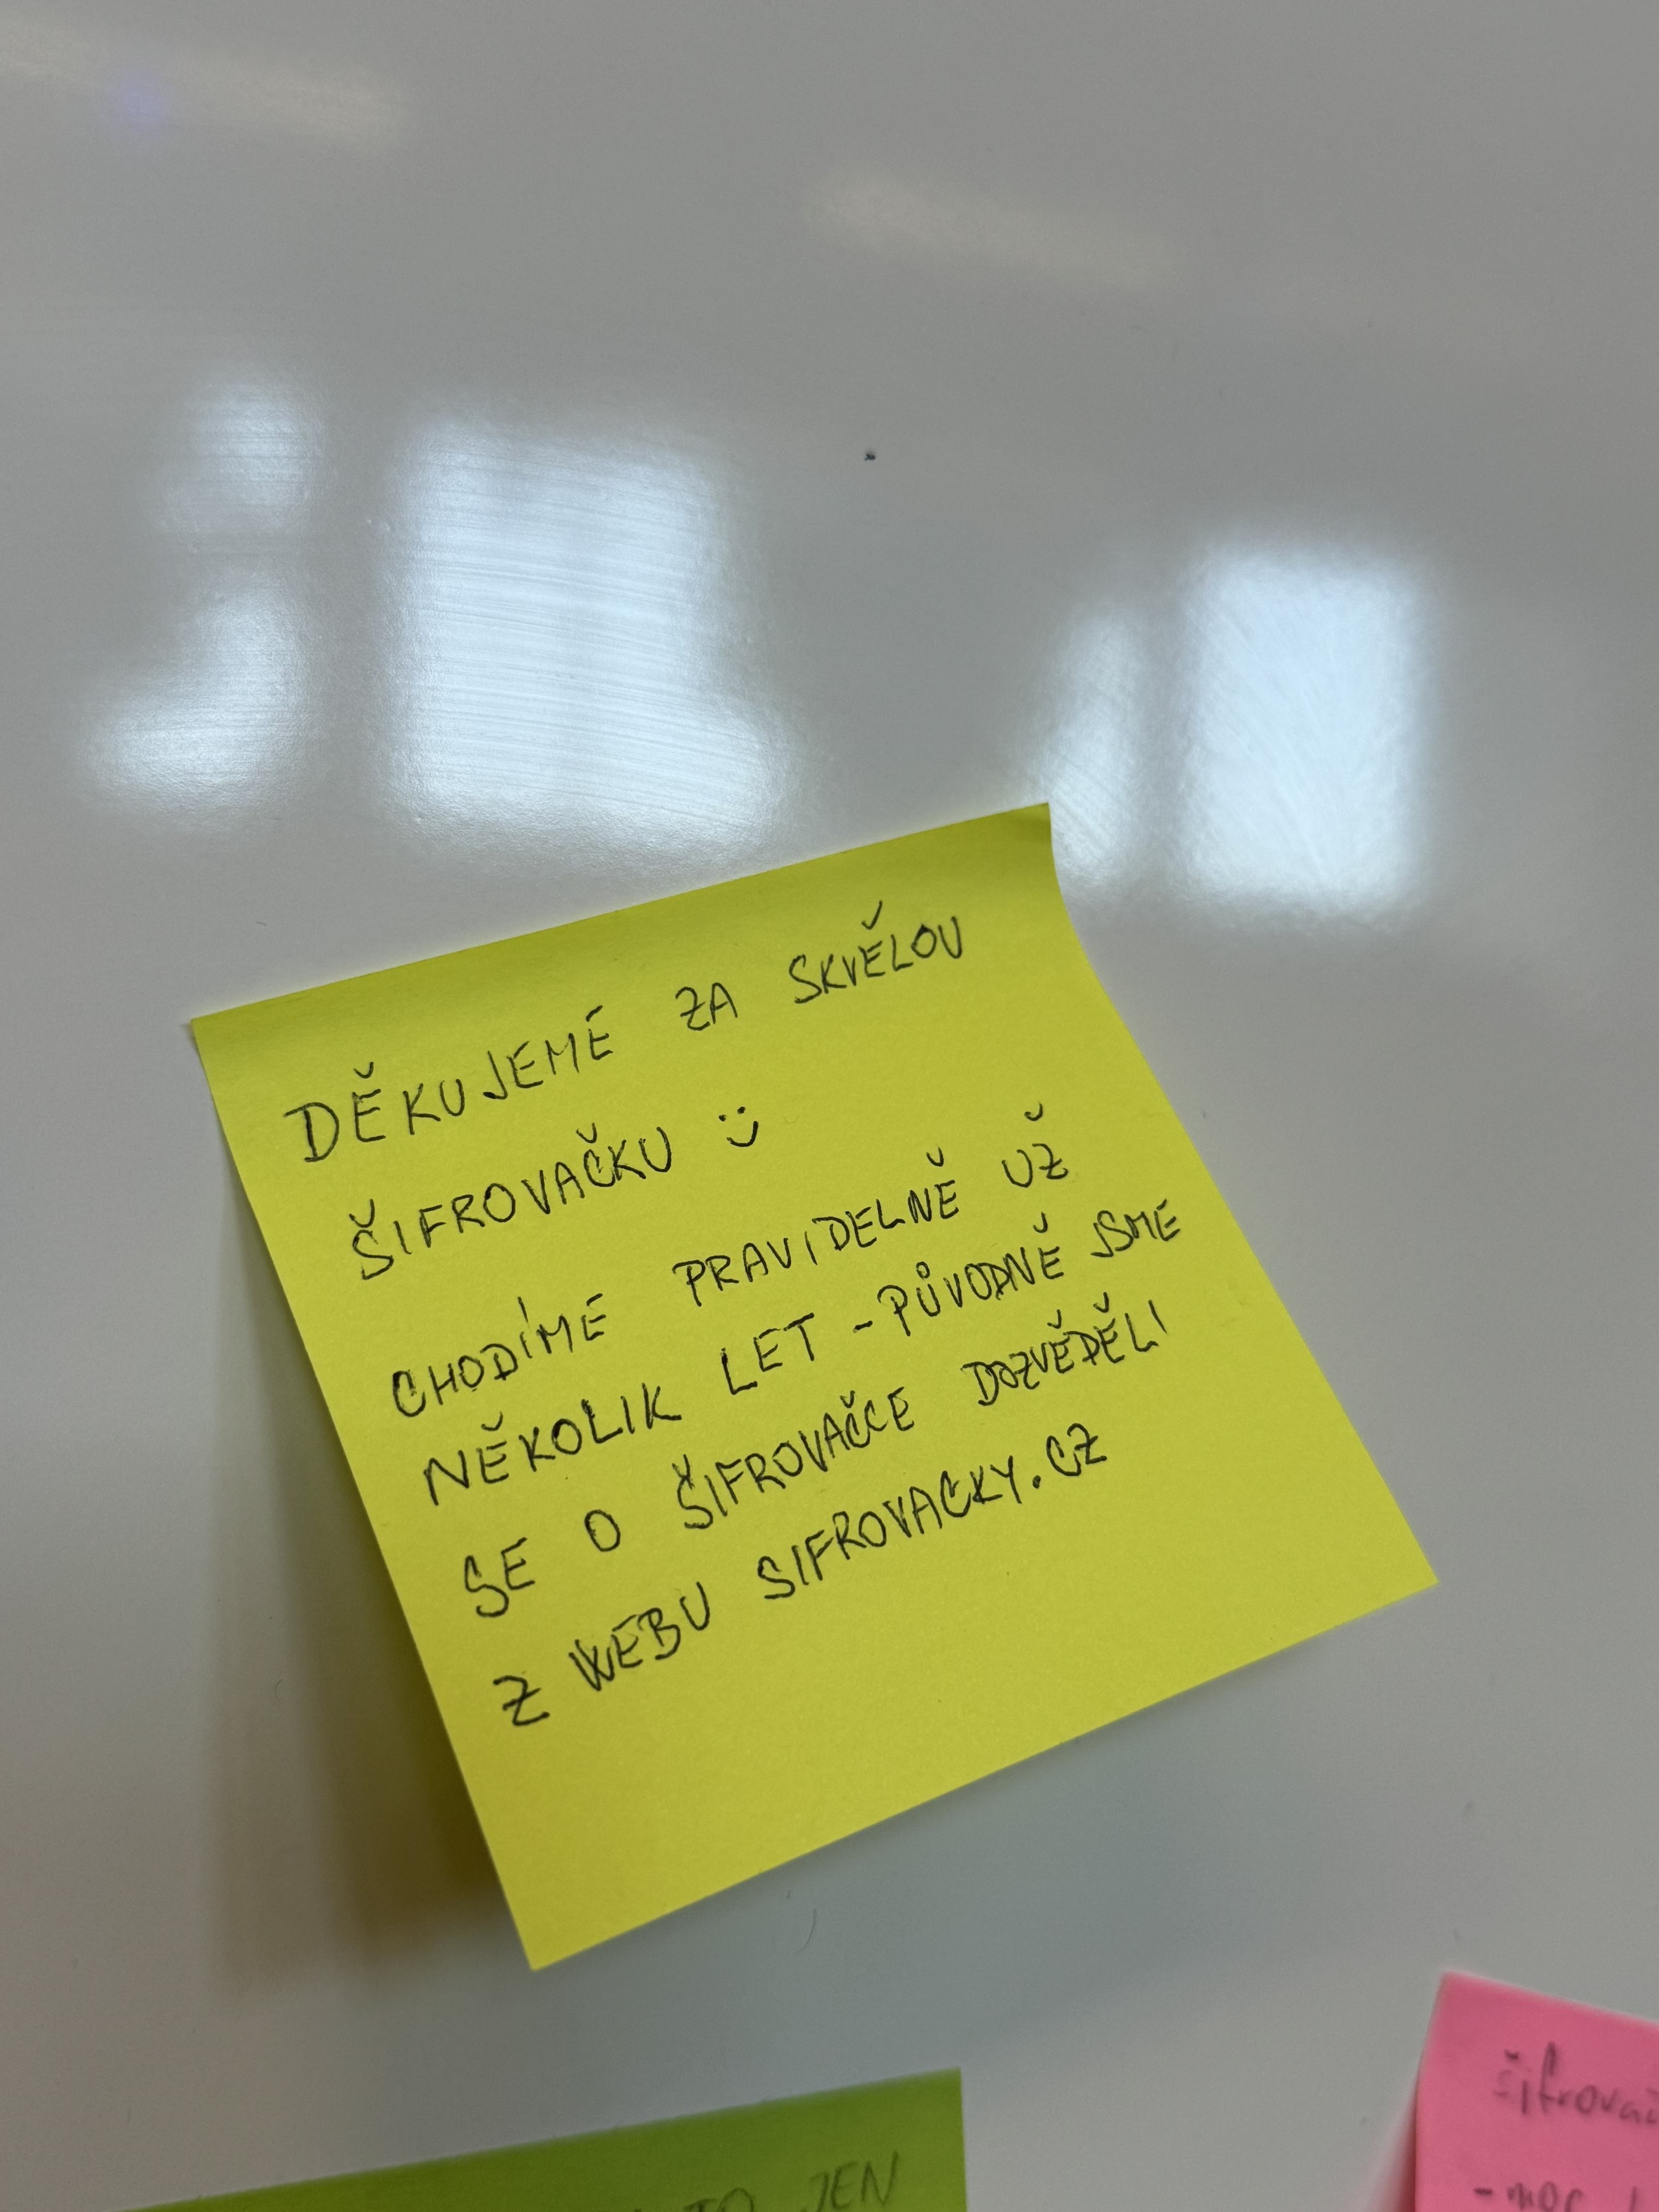 DĚKUJEME ZA SKVĚLOU
ŠIFROVAČKU :)
CHODÍME PRAVIDELNĚ UŽ
NĚKOLIK LET - PŮVODNĚ JSME
SE O ŠIFROVAČCE DOZVĚDĚLI
Z WEBU SIFROVACKY.CZ
TO JEN